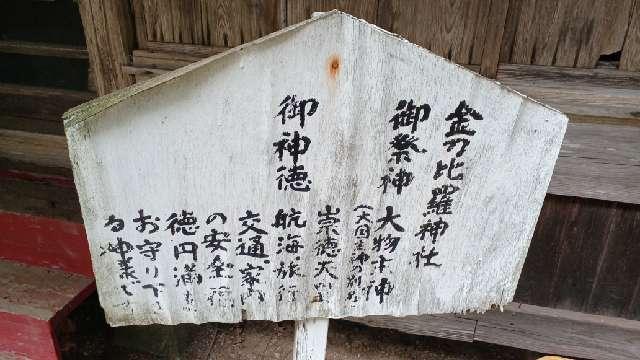 金刀比羅神社
御祭神 大物主神
(大国主神の別
崇徳天
御神徳 航海、旅行
交通、家内
の安全、福
徳円満を
お守り下
る神様で